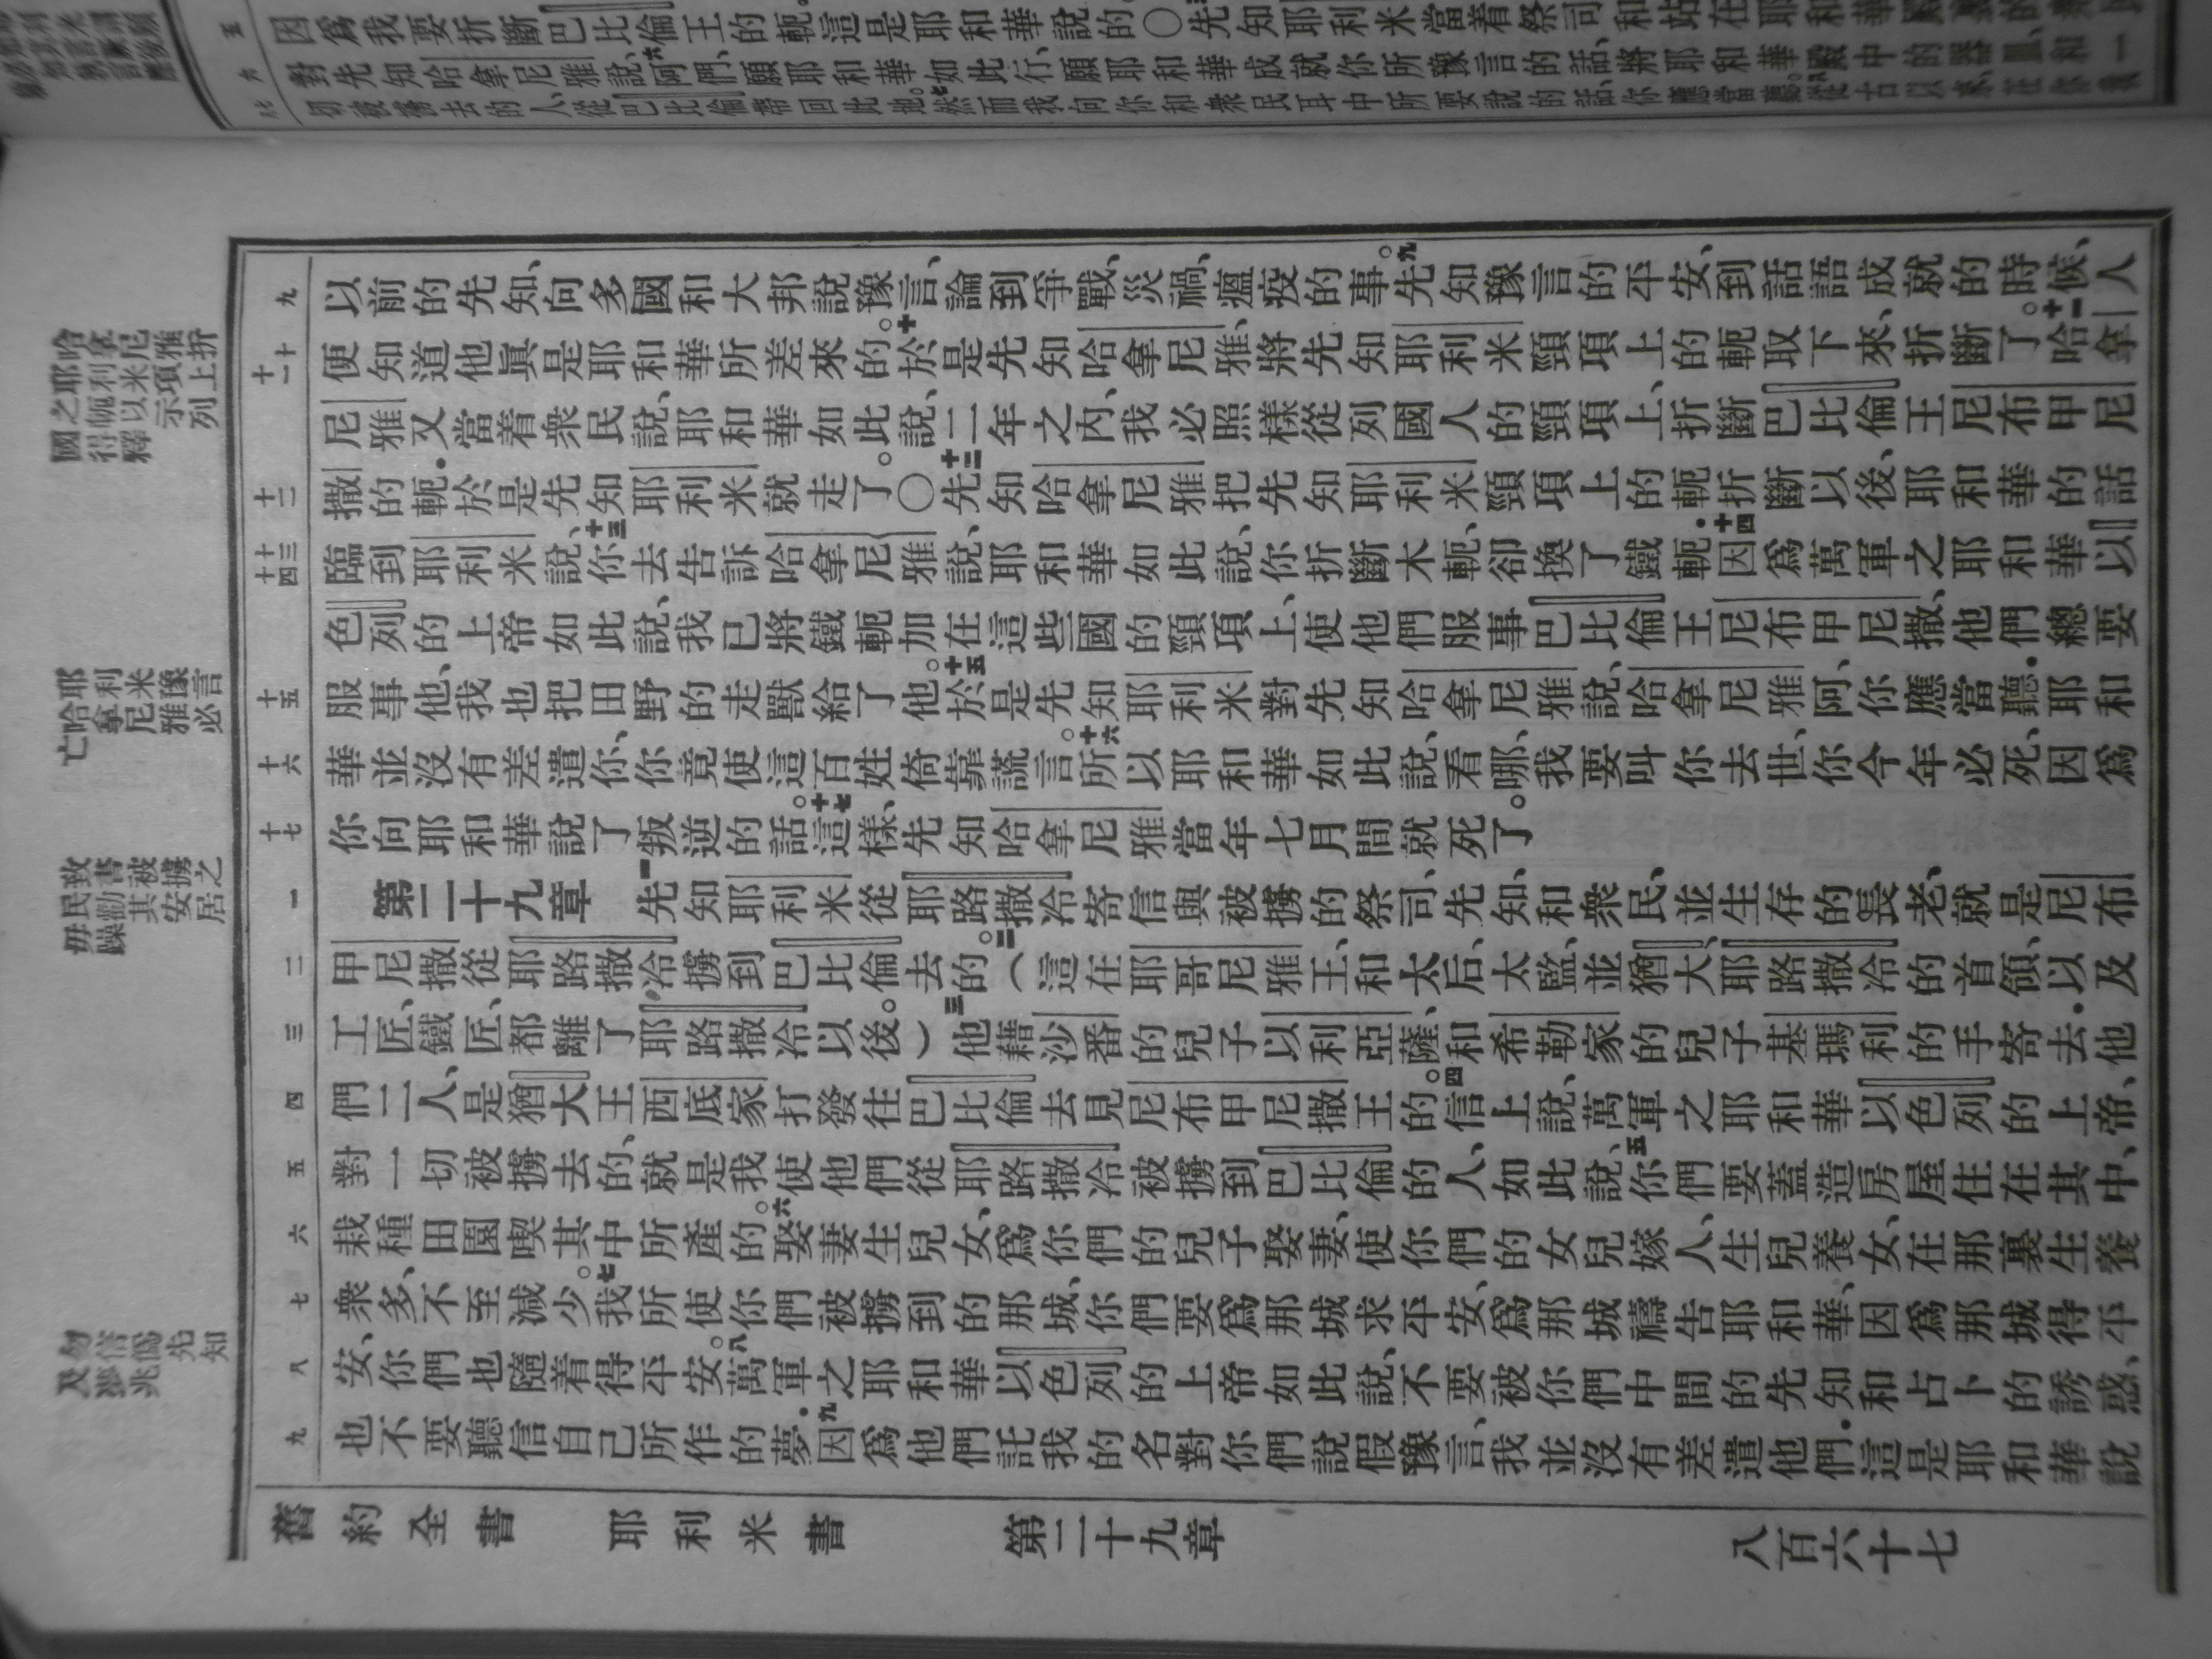 因爲我要折斷巴比倫王的軛、這是耶和華說的。〇先知耶利米當着祭司、和站在耶和華殿
對先知哈拿尼雅說、六阿們、願耶和華如此行、願耶和華成就你所豫言的話、將耶和華殿中的器皿、和一
切被擄去的人、從巴比倫帶回此地。七然而我向你和衆民耳中所要說的話、你應當聽。八從古以來、在你我
以前的先知、向多國和大邦說豫言、論到爭戰、災禍、瘟疫的事。九先知豫言的平安、到話語成就的時候、人
便知道他眞是耶和華所差來的。十於是先知哈拿尼雅、將先知耶利米頸項上的軛取下來、折斷了。十一哈拿
尼雅又當着衆民說、耶和華如此說、二年之內、我必照樣從列國人的頸項上、折斷巴比倫王尼布甲尼
撒的軛.於是先知耶利米就走了。〇十二先知哈拿尼雅把先知耶利米頸項上的軛折斷以後、耶和華的話
臨到耶利米說、十三你去告訴哈拿尼雅說、耶和華如此說、你折斷木軛、卻換了鐵軛.十四因爲萬軍之耶和華以
色列的上帝如此說、我已將鐵軛加在這些國的頸項上、使他們服事巴比倫王尼布甲尼撒、他們總要
服事他、我也把田野的走獸給了他。十五於是先知耶利米對先知哈拿尼雅說、哈拿尼雅阿、你應當聽.耶和
華並沒有差遣你、你竟使這百姓倚靠謊言。十六所以耶和華如此說、看哪、我要叫你去世、你今年必死、因爲
你向耶和華說了叛逆的話。十七這樣、先知哈拿尼雅當年七月間就死了。
第二十九章 一先知耶利米從耶路撒冷寄信與被擄的祭司、先知、和衆民、並生存的長老、就是尼布
甲尼撒從耶路撒冷擄到巴比倫去的。二（這在耶哥尼雅王、和太后、太監、並猶大、耶路撒冷的首領、以及
工匠、鐵匠、都離了耶路撒冷以後。）三他藉沙番的兒子以利亞薩、和希勒家的兒子基瑪利的手寄去.他
們二人、是猶大王西底家打發往巴比倫去見尼布甲尼撒王的。四信上說、萬軍之耶和華以色列的上帝、
對一切被擄去的、就是我使他們從耶路撒冷被擄到巴比倫的人、如此說、五你們要蓋造房屋住在其中、
栽種田園喫其中所產的。六娶妻生兒女、爲你們的兒子娶妻、使你們的女兒嫁人、生兒養女、在那裏生養
衆多、不至減少。七我所使你們被擄到的那城、你們要爲那城求平安、爲那城禱告耶和華、因爲那城得平
安、你們也隨着得平安。八萬軍之耶和華以色列的上帝如此說、不要被你們中間的先知和占卜的誘惑、
也不要聽信自己所作的夢.九因爲他們託我的名對你們說假豫言、我並沒有差遣他們.這是耶和華說
九
十
十一
十二
十三
十四
十五
十六
十七
一
二
三
四
五
六
七
八
九
哈拿尼雅折
耶利米項上
之軛以示列
國得釋
耶利米豫言
哈拿尼雅必
亡
致書被擄之
民勸其安居
毋躁
勿信僞先知
及夢兆
舊約全書 耶利米書 第二十九章 八百六十七